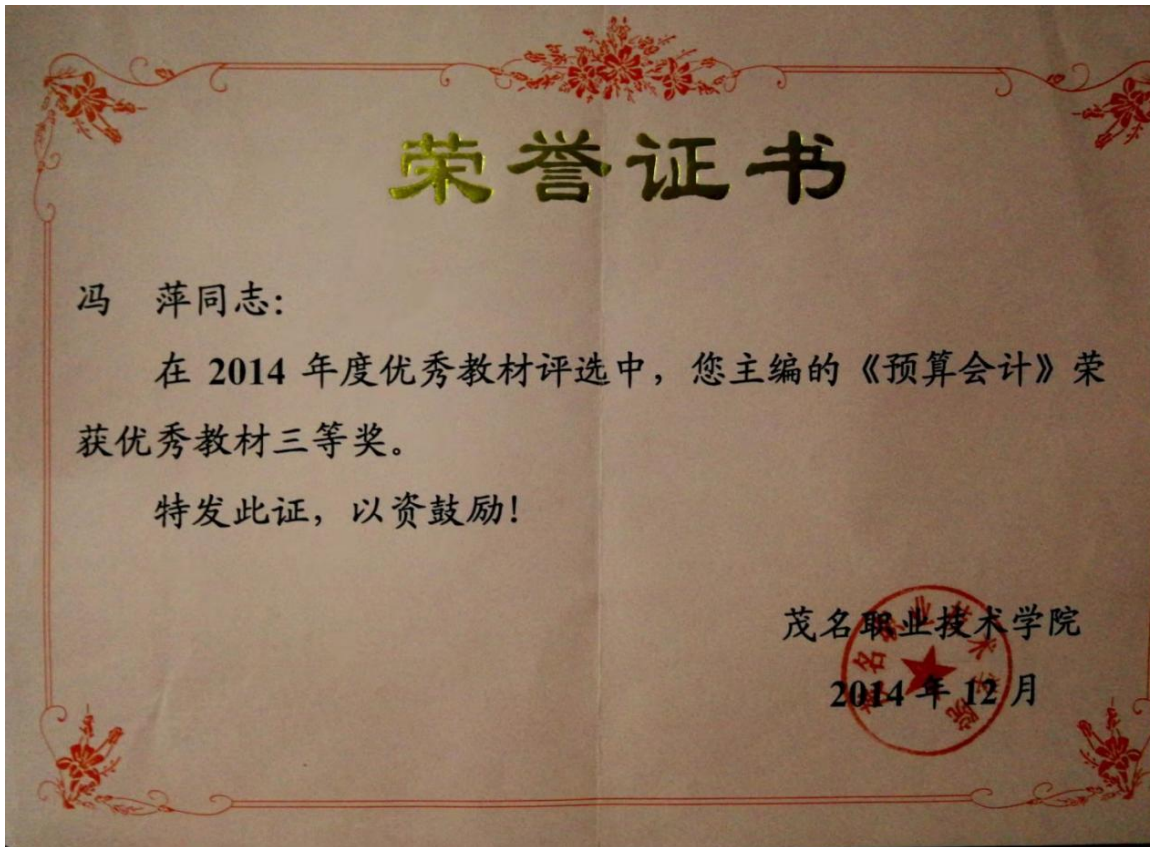 荣誉证书
冯　萍同志：
在 2014 年度优秀教材评选中，您主编的《预算会计》荣
获优秀教材三等奖。
特发此证，以资鼓励！
茂名职业技术学院
2014 年 12 月
茂名职业技术学院